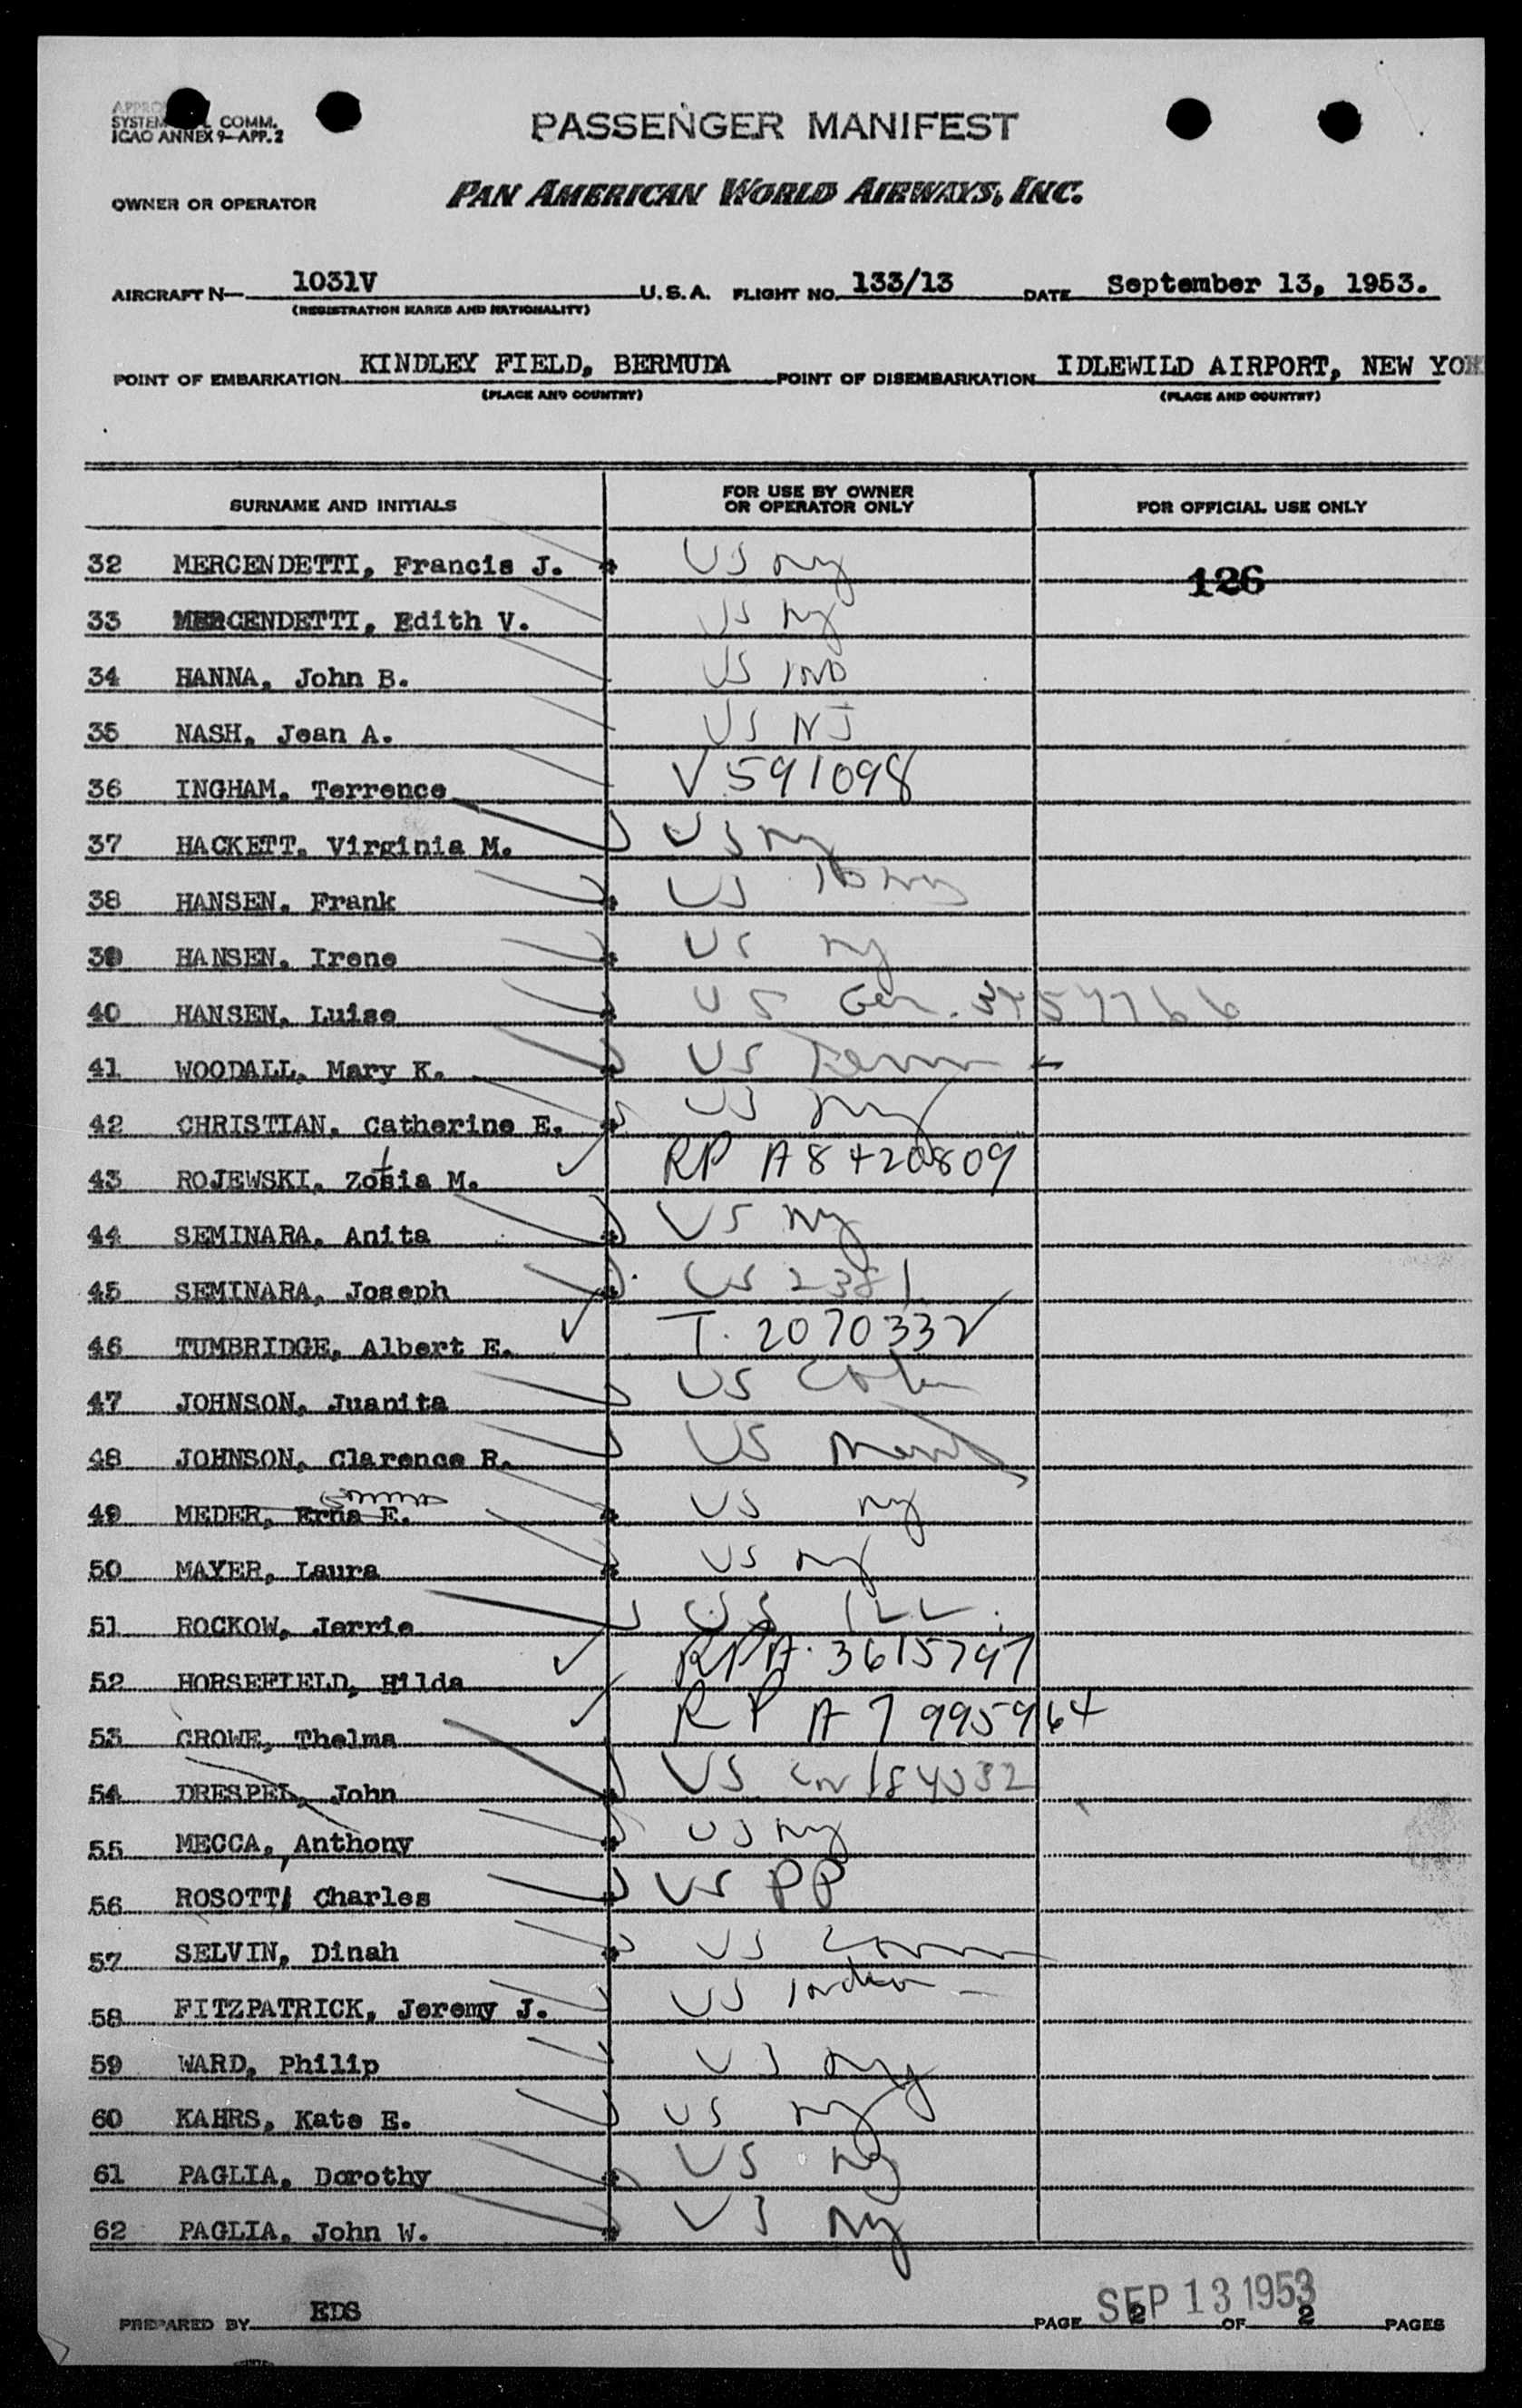 APPRO
SYSTEM COMM.
ICAO ANNEX 9—APP. 2
PASSENGER MANIFEST
OWNER OR OPERATOR PAN AMERICAN WORLD AIRWAYS, INC.
AIRCRAFT N— 1031V U.S.A. FLIGHT NO. 133/13 DATE September 13, 1953.
(REGISTRATION MARKS AND NATIONALITY)
POINT OF EMBARKATION KINDLEY FIELD, BERMUDA POINT OF DISEMBARKATION IDLEWILD AIRPORT, NEW YOR
(PLACE AND COUNTRY) (PLACE AND COUNTRY)
SURNAME AND INITIALS FOR USE BY OWNER OR OPERATOR ONLY FOR OFFICIAL USE ONLY
32 MERCENDETTI, Francis J. US NY 126
33 MERCENDETTI, Edith V. US NY
34 HANNA, John B. US IND
35 NASH, Jean A. US NJ
36 INGHAM, Terrence V 591098
37 HACKETT, Virginia M. US NY
38 HANSEN, Frank US
39 HANSEN, Irene US NY
40 HANSEN, Luise US Ger.
41 WOODALL, Mary K. US Tenn
42 CHRISTIAN, Catherine E. US NY
43 ROJEWSKI, Zosia M. RP A8420809
44 SEMINARA, Anita US NY
45 SEMINARA, Joseph US 2381
46 TUMBRIDGE, Albert E. T. 2070332
47 JOHNSON, Juanita US
48 JOHNSON, Clarence R. US
49 MEDER, Erna E. US NY
50 MAYER, Laura US NY
51 ROCKOW, Jerrie US ILL.
52 HORSEFIELD, Hilda RPA. 3615797
53 CROWE, Thelma RP A7 995964
54 DRESPEL, John US
55 MECCA, Anthony US NY
56 ROSOTTI Charles US PP
57 SELVIN, Dinah US Conn
58 FITZPATRICK, Jeremy J. US
59 WARD, Philip US NY
60 KAHRS, Kate E. US NY
61 PAGLIA, Dorothy US NY
62 PAGLIA, John W. US NY
PREPARED BY EDS SEP 13 1953
PAGE 2 OF 2 PAGES